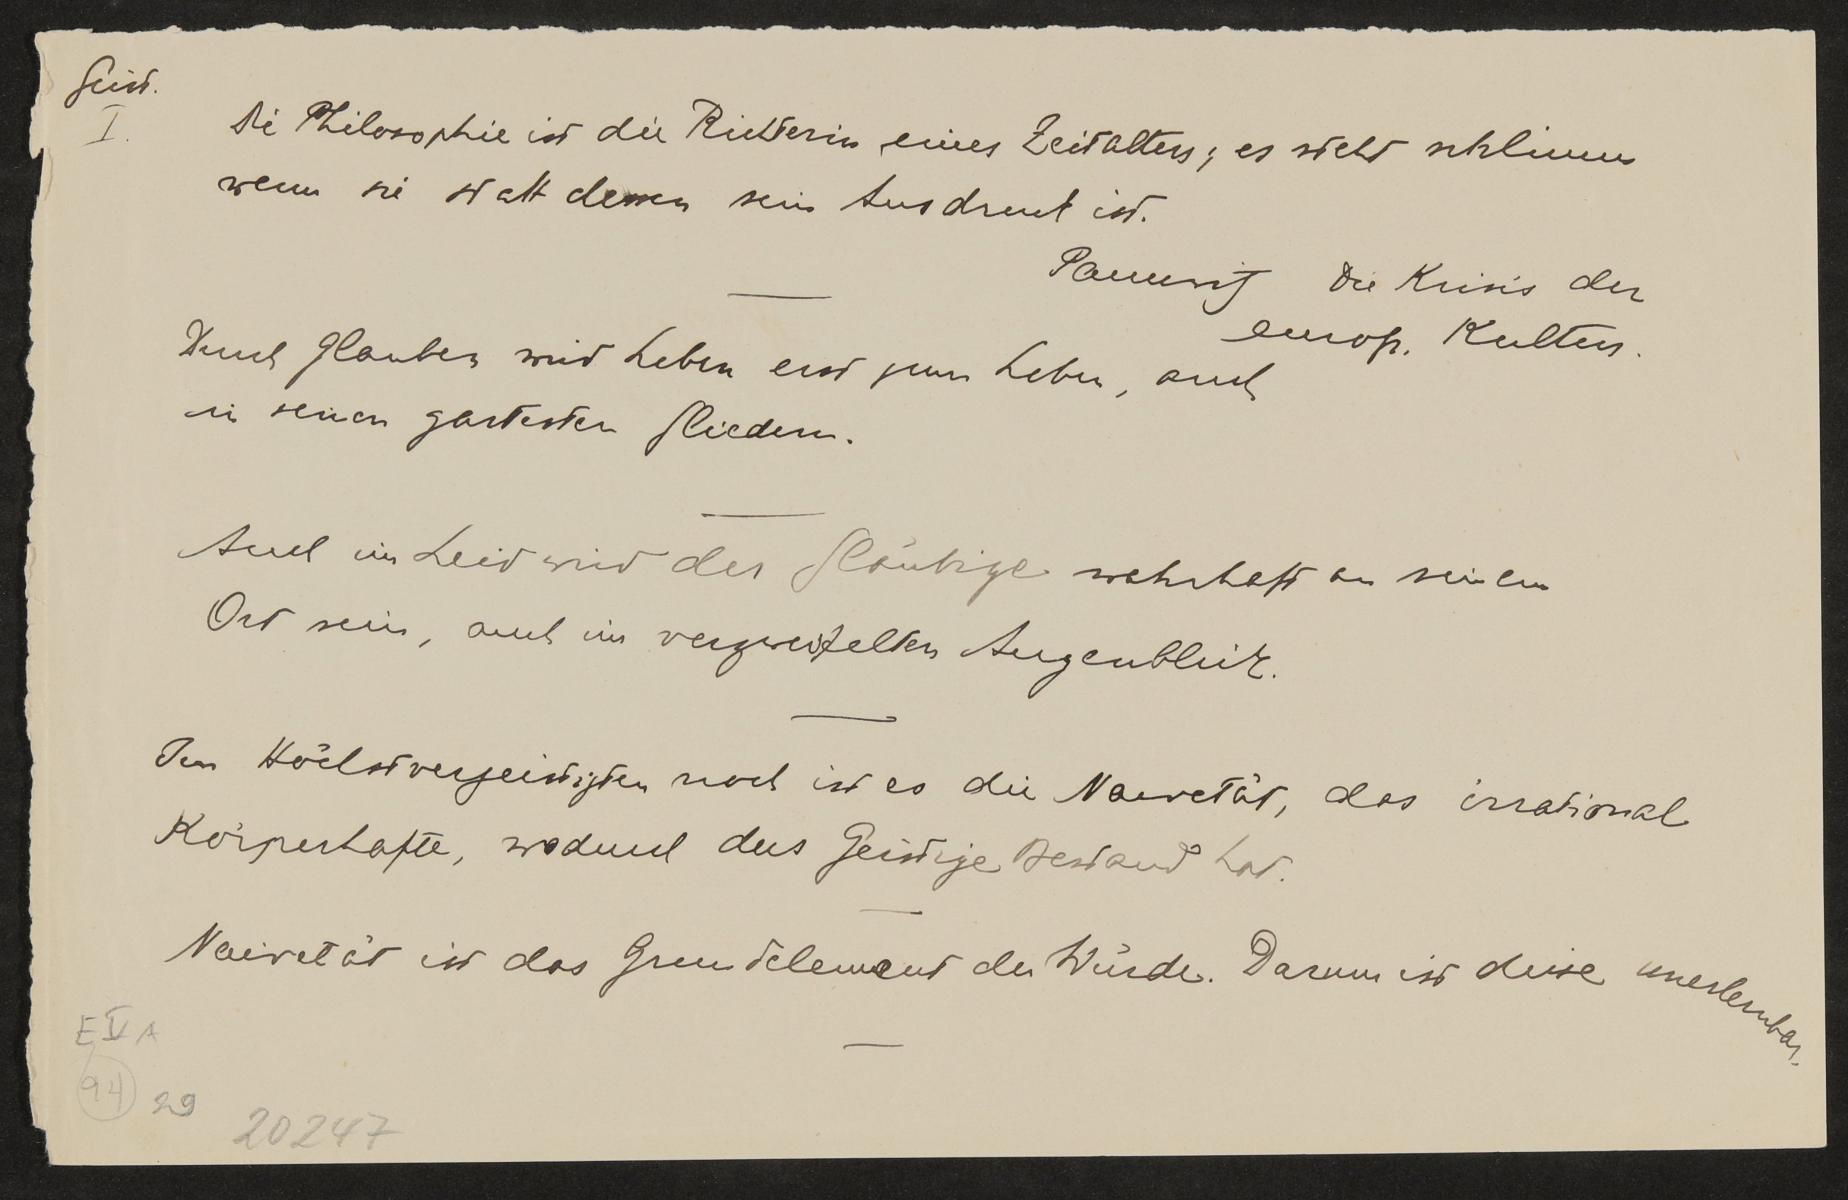 Geist.
I.
Die Philosophie ist die Richterin eines Zeitalters; es steht schlimm
wenn sie statt dessen sein Ausdruck ist.
Pannwitz Die Krisis der
europ. Kultur.
Durch Glauben wird Leben erst zum Leben, auch
in seinen zartesten Gliedern.
Auch im Leid wird der Gläubige wahrhaft an seinem
Ort sein, auch im verzweifelten Augenblick.
Im Höchstvergeistigten noch ist es die Naivetät, das irrational
Körperhafte, wodurch das Geistige Bestand hat.
Naivetät ist das Grundelement der Würde. Darum ist diese unerlernbar.
E V A
94 29
20247